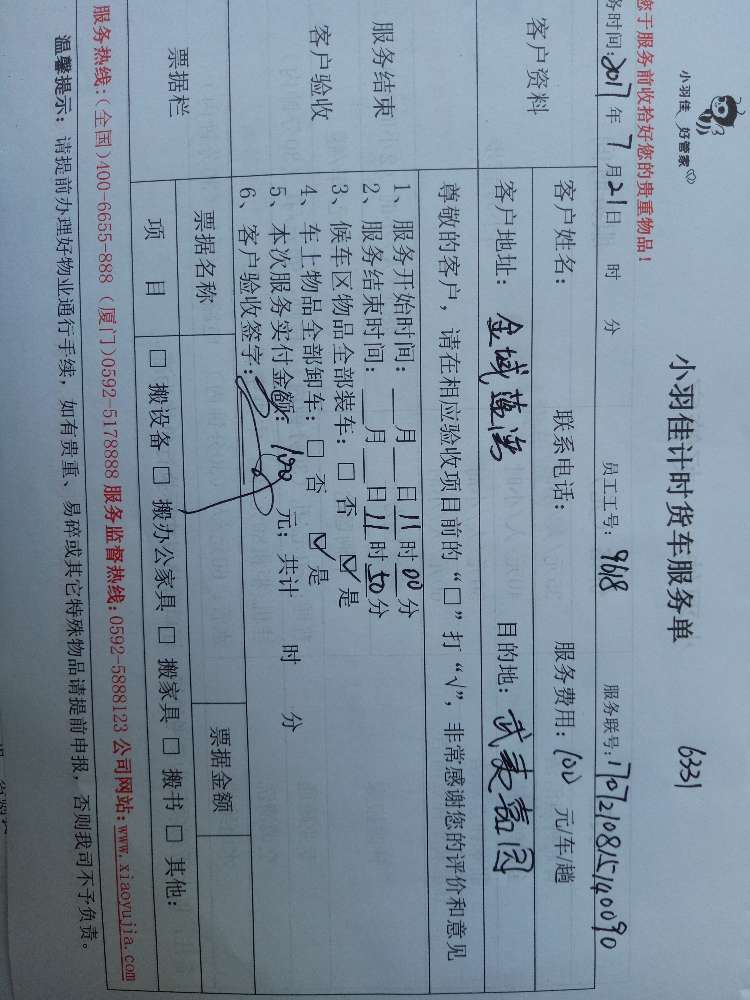 小羽佳 好管家
小羽佳计时货车服务单
6331
您于服务前收拾好您的贵重物品！
务时间：2017年7月21日 时 分 员工工号：9618 服务联号：170721081540090
客户资料
客户姓名： 联系电话： 服务费用：100 元/车/趟
客户地址： 金域蓝湾 目的地： 武夷嘉园
服务结束
客户验收
尊敬的客户，请在相应验收项目前的“□”打“√”，非常感谢您的评价和意见
1、服务开始时间：__月__日11时00分
2、服务结束时间：__月__日11时50分
3、候车区物品全部装车：□ 否 ☑ 是
4、车上物品全部卸车：□ 否 ☑ 是
5、本次服务实付金额：100 元；共计 时 分
6、客户验收签字：
票据栏
票据名称 票据金额
项 目 □ 搬设备 □ 搬办公家具 □ 搬家具 □ 搬书 □ 其他：
服务热线：(全国)400-6655-888 (厦门)0592-5178888 服务监督热线：0592-5888123 公司网站：www.xiaoyujia.com
温馨提示：请提前办理好物业通行手续，如有贵重、易碎或其它特殊物品请提前申报，否则我司不予负责。